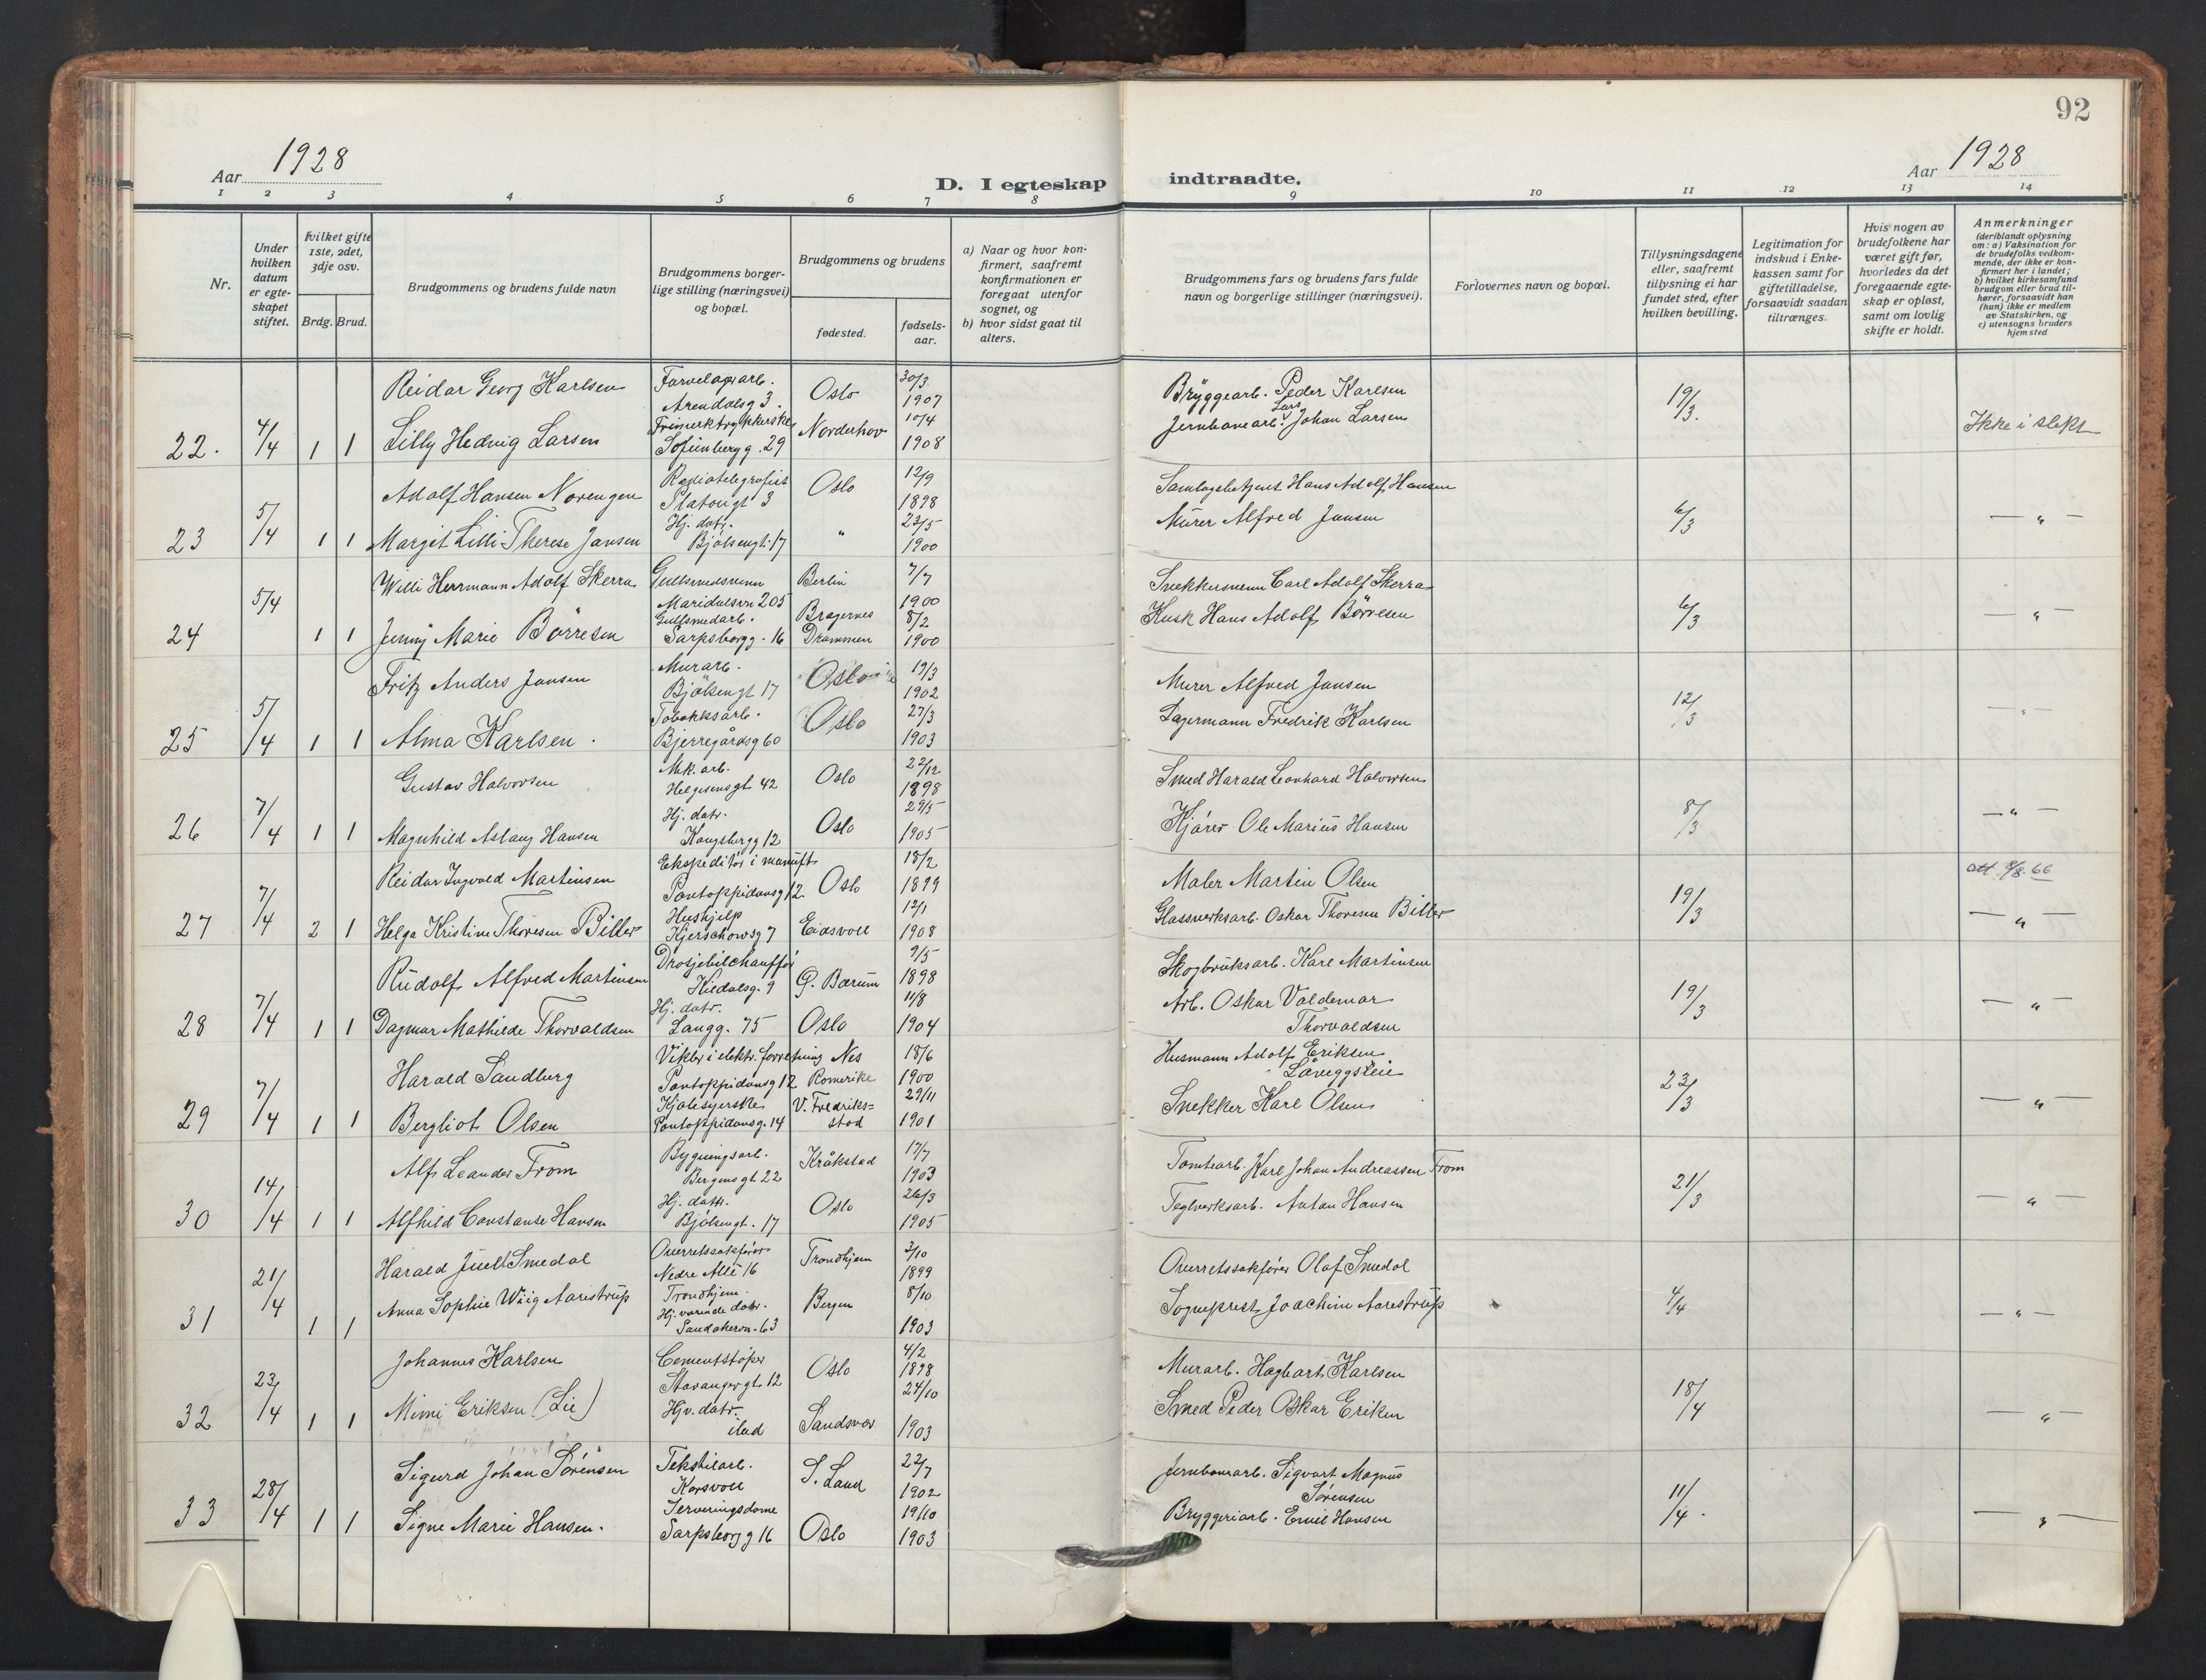 92
Aar 1928
D. I egteskap indtraadte.
Aar 1928
1 2 3 4 5 6 7 8 9 10 11 12 13 14
Nr.
Under hvilken datum er egteskapet stiftet.
hvilket gifte 1ste, 2det, 3dje osv.
Brdg. Brud.
Brudgommens og brudens fulde navn
Brudgommens borgerlige stilling (næringsvei) og bopæl.
Brudgommens og brudens
fødested.
fødselsaar.
a) Naar og hvor konfirmert, saafremt konfirmationen er foregaat utenfor sognet, og
b) hvor sidst gaat til alters.
Brudgommens fars og brudens fars fulde navn og borgerlige stillinger (næringsvei).
Forlovernes navn og bopæl.
Tillysningsdagene eller, saafremt tillysning ei har fundet sted, efter hvilken bevilling.
Legitimation for indskud i Enkekassen samt for giftetilladelse, forsaavidt saadan tiltrænges.
Hvis nogen av brudefolkene har været gift før, hvorledes da det foregaaende egteskap er opløst, samt om lovlig skifte er holdt.
Anmerkninger
(deriblandt oplysning om: a) Vaksination for de brudefolks vedkommende, der ikke er konfirmert her i landet; b) hvilket kirkesamfund brudgom eller brud tilhører, forsaavidt han (hun) ikke er medlem av Statskirken, og c) utensogns bruders hjemsted
22. 4/4 1 1
Reidar Georg Karlsen Farvelagerarb. Arendalsg 3. Oslo 30/3 1907 Bryggearb. Peder Karlsen 19/3.
Lilly Hedvig Larsen Frimerktrykkerske Sofienberg g. 29 Norderhov 10/4 1908 Jernbanearb. Lars Johan Larsen Ikke i slekt
23 5/4 1 1
Adolf Hansen Norengen Radiotelegrafist Platougt 3 Oslo 12/9 1898 Samlagsbetjent Hans Adolf Hansen 6/3
Margit Lilli Therese Jansen Hj. datr. Bjølsengt. 17 " 23/5 1900 Murer Alfred Jansen — " —
24 5/4 1 1
Willi Herrmann Adolf Skerra Gullsmedsvenn Maridalsvn 205 Berlin 7/7 1900 Snekkersvenn Carl Adolf Skerra 6/3
Jenny Marie Börresen Gullsmedarb. Sarpsborgg. 16 Bragernes Drammen 8/2 1900 Kusk Hans Adolf Börresen — " —
25 5/4 1 1
Fritz Anders Jansen Murarb. Bjølsengt 17 Oslo 19/3 1902 Murer Alfred Jansen 12/3
Alma Karlsen. Tobakksarb. Bjerregårdsg 60 Oslo 27/3 1903 Lagermann Fredrik Karlsen — " —
26 7/4 1 1
Gustav Halvorsen Mek. arb. Helgesensgt 42 Oslo 22/12 1898 Smed Harald Leonhard Halvorsen 8/3
Magnhild Aslaug Hansen Hj. datr. Kongsbergg 12 Oslo 29/5 1905 Kjører Ole Marius Hansen — " —
27 7/4 2 1
Reidar Ingvald Martinsen Ekspeditør i manuft. Pontoppidansg 12 Oslo 18/2 1899 Maler Martin Olsen 19/3 att. 8/8.66
Helga Kristine Thoresen Biller Hushjelp Kjerschowsg 7 Eidsvoll 12/1 1908 Glassverksarb. Oskar Thoresen Biller — " —
28 7/4 1 1
Rudolf Alfred Martinsen Drosjebilchauffør Kildalsg. 9 Ø. Bærum 9/5 1898 Skogbruksarb. Karl Martinsen 19/3
Dagmar Mathilde Thorvaldsen Hj. datr. Langg. 75 Oslo 11/8 1904 Arb. Oskar Valdemar Thorvaldsen — " —
29 7/4 1 1
Harald Sandberg Vikler i elektr. forretning Pontoppidansg 12 Nes Romerike 18/6 1900 Husmann Adolf Eriksen Låveggsteie 23/3
Bergliot Olsen Kjolesyerske Pontoppidansg. 14 V. Fredrikstad 29/11 1901 Snekker Karl Olsen — " —
30 14/4 1 1
Alf Leander From Bygningsarb. Bergensgt 22 Kråkstad 17/7 1903 Tomtearb. Karl Johan Andreassen From 21/3
Alfhild Constanse Hansen Hj. datr. Bjølsengt. 17 Oslo 26/3 1905 Teglverksarb. Anton Hansen — " —
31 21/4 1 1
Harald Juell Smedal Overretssakfører Nedre Alle 16 Trondhjem Trondhjem 3/10 1899 Overretssakfører Olaf Smedal 4/4
Anna Sophie Wiig Aarestrup Hj. værende datr. Sandakervn. 63 Bergen 8/10 1903 Sogneprest Joachim Aarestrup — " —
32 23/4 1 1
Johannes Karlsen Cementstøper Stavangergt. 12 Oslo 4/2 1898 Murarb. Hagbart Karlsen 18/4
Mimi Eriksen (Lie) Hjv. datr. ibid Sandsvær 24/10 1903 Smed Peder Oskar Eriksen — " —
33 28/4 1 1
Sigurd Johan Sörensen Tekstilarb. Korsvoll S. Land 22/7 1902 Jernbanearb. Sigvart Magnus Sörensen 11/4.
Signe Marie Hansen. Serveringsdame Sarpsborgg 16 Oslo 19/10 1903 Bryggeriarb. Emil Hansen — " —